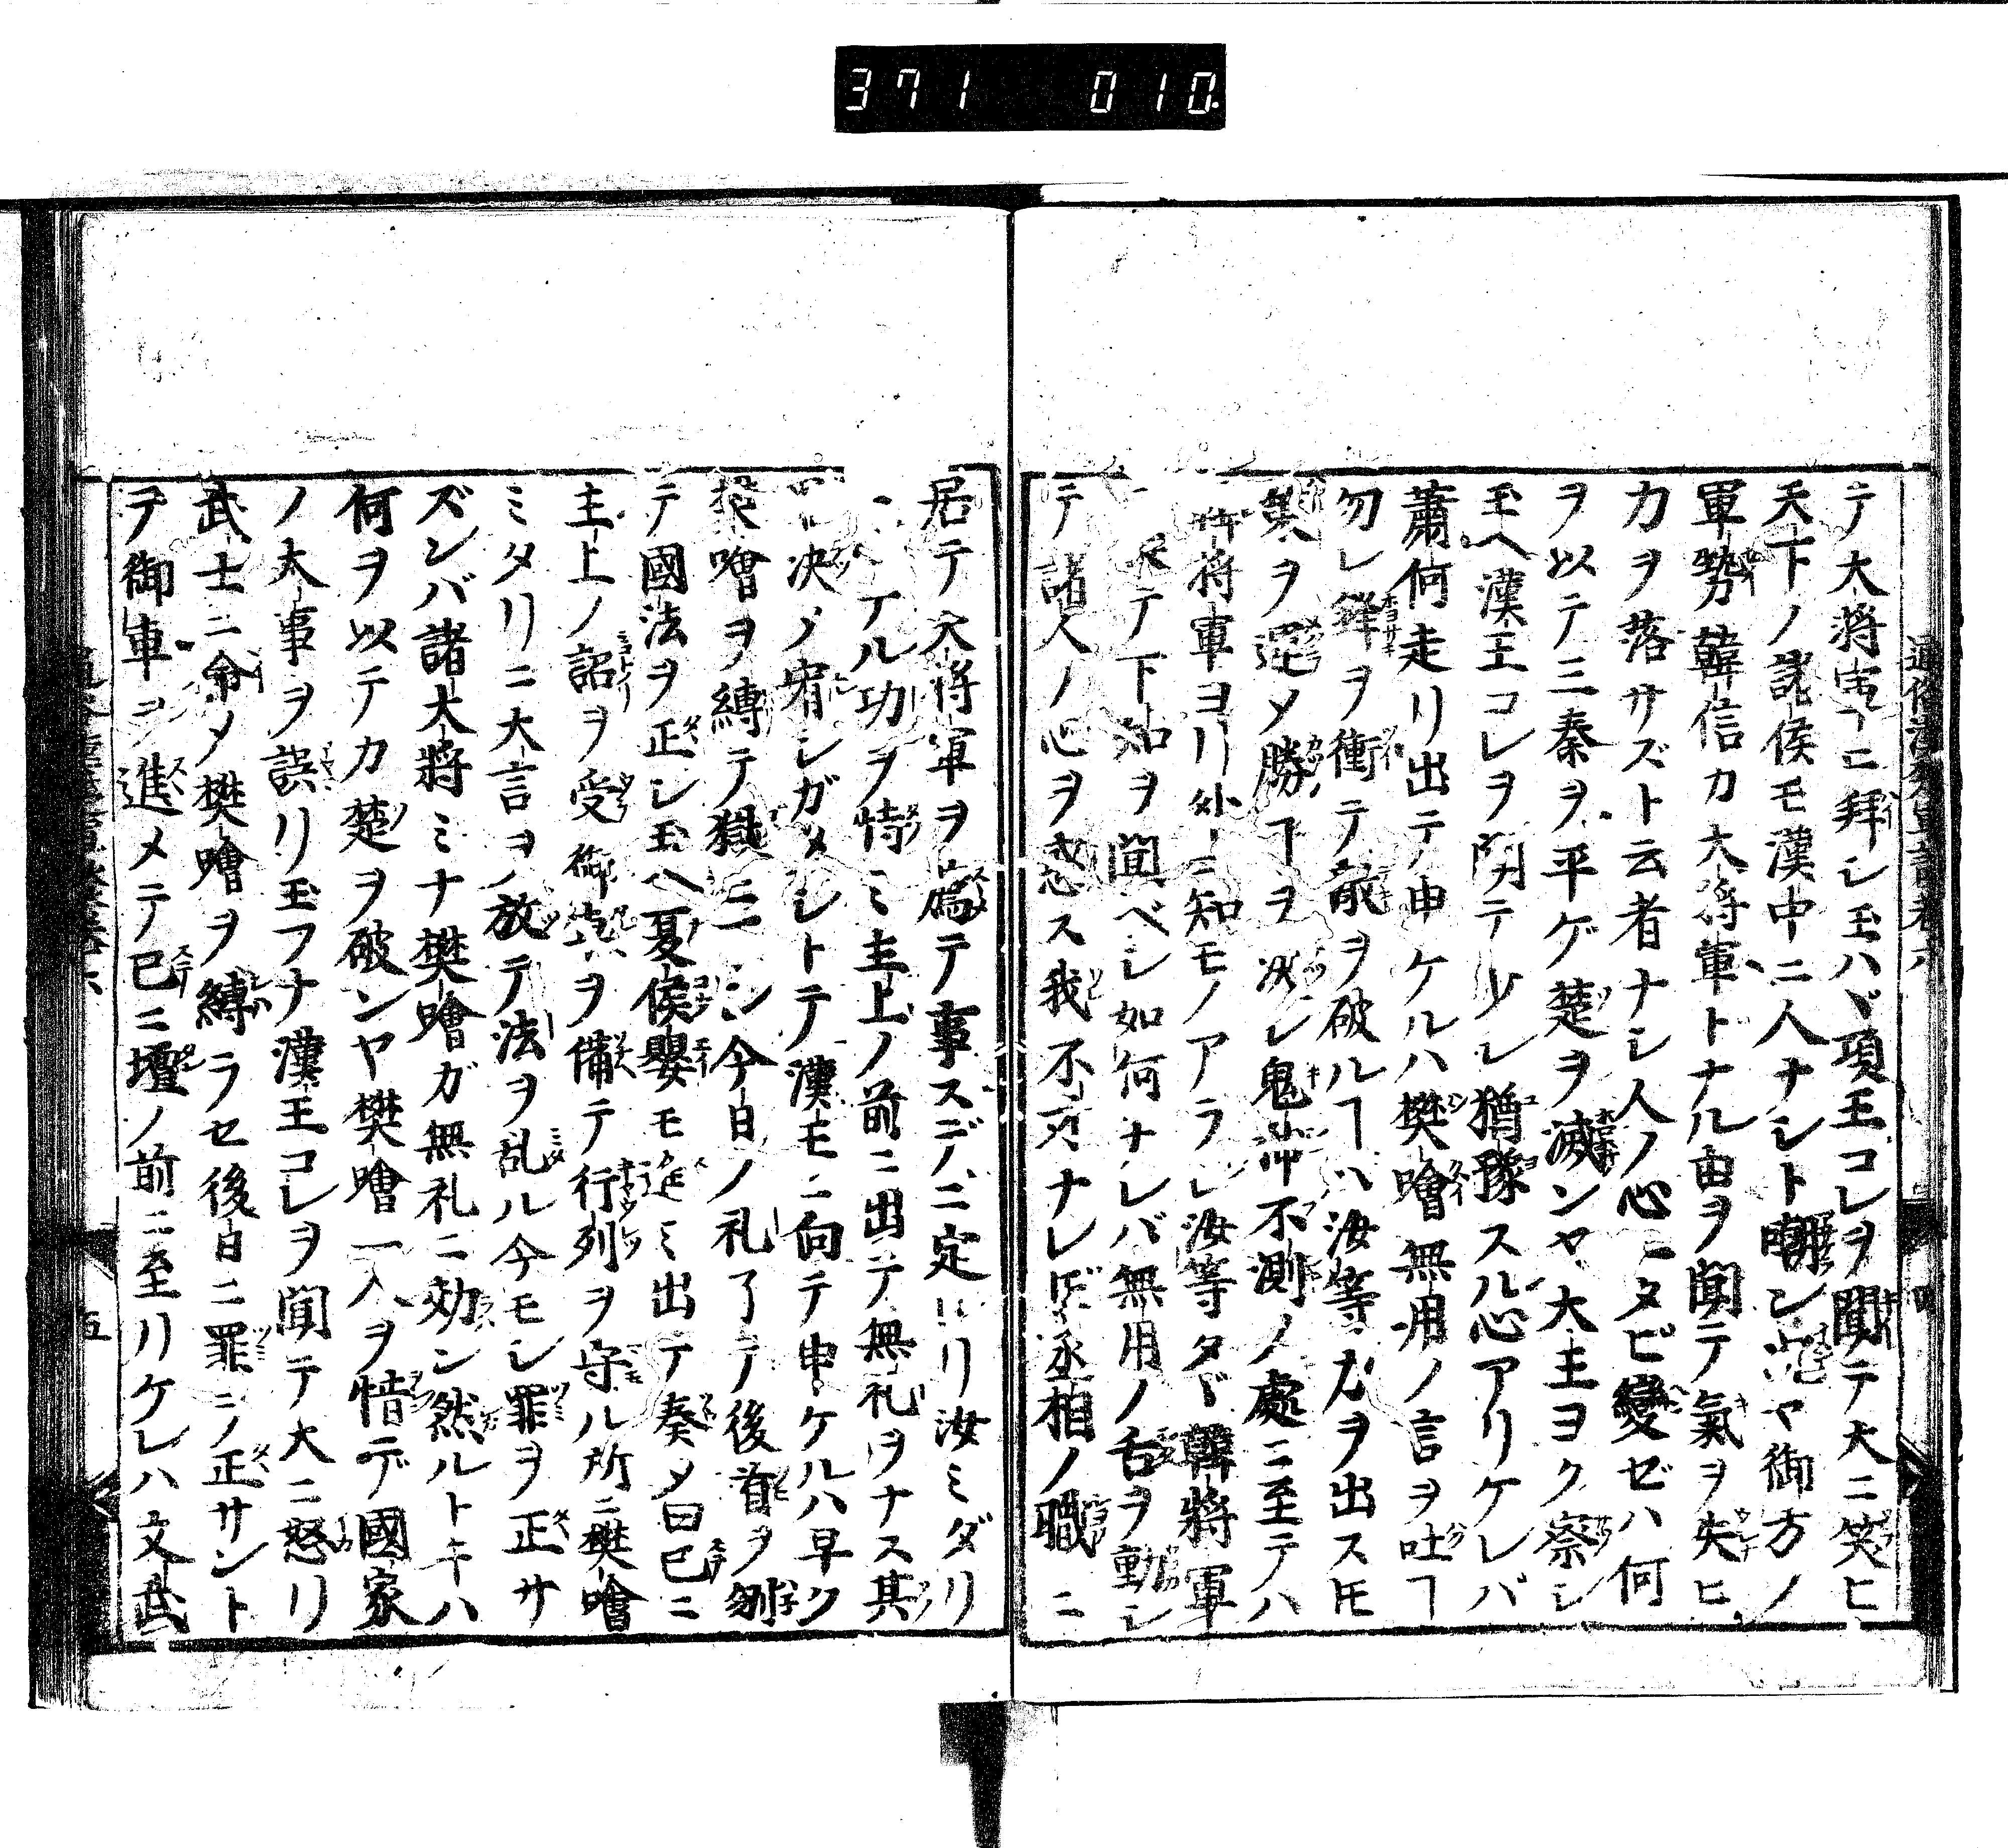 371 010
テ大将軍ニ拜シ玉ハヾ項王コレヲ聞テ大ニ笑ヒ
天下ノ諸侯モ漢中ニ人ナシト嘲ン ヤ御方ノ
軍勢韓信カ大将軍トナル由ヲ聞テ氣ヲ失ヒ
力ヲ落サズト云者ナシ人ノ心一タビ變ゼハ何
ヲ以テ三秦ヲ平ゲ楚ヲ滅ンヤ大王ヨク察シ
玉ヘ漢王コレヲ聞テ少シ猶豫スル心アリケレバ
蕭何走リ出テ申ケルハ樊噲無用ノ言ヲ吐ヿ
勿レ鋒ヲ衝テ敵ヲ破ルヿハ汝等 力ヲ出スヒ
ヲ運メ勝ヿヲ決シ鬼神不測ノ處ニ至テハ
将軍ヨリ外ニ知モノアラン汝等タヾ韓將軍
テ下知ヲ聞ベシ如何ナレバ無用ノ舌ヲ動シ
テ諸人ノ心ヲ惑ス我不才ナレ 丞相ノ職ニ
居テ大将軍ヲ薦テ事スデニ定 リ汝ミダリ
ケル功ヲ恃ミ主上ノ前ニ出テ無礼ヲナス其
決メ宥シガタシトテ漢王ニ向テ申ケルハ早ク
樊噲ヲ縛テ獄ニ 今日ノ礼了テ後首ヲ刎
テ國法ヲ正シ玉ヘ夏侯嬰モ進ミ出テ奏メ曰已ニ
主上ノ詔ヲ受御 ヲ備テ行列ヲ守ル所ニ樊噲
ミタリニ大言ヲ放テ法ヲ乱ル今モシ罪ヲ正サ
ズンバ諸大将ミナ樊噲ガ無礼ニ効ン然ルトキハ
何ヲ以テカ楚ヲ破ンヤ樊噲一人ヲ惜デ國家
ノ大事ヲ誤リ玉フナ漢王コレヲ聞テ大ニ怒リ
武士ニ命メ樊噲ヲ縛ラセ後日ニ罪ヲ正サント
テ御車ヲ進メテ已ニ壇ノ前ニ至リケレハ文武
五